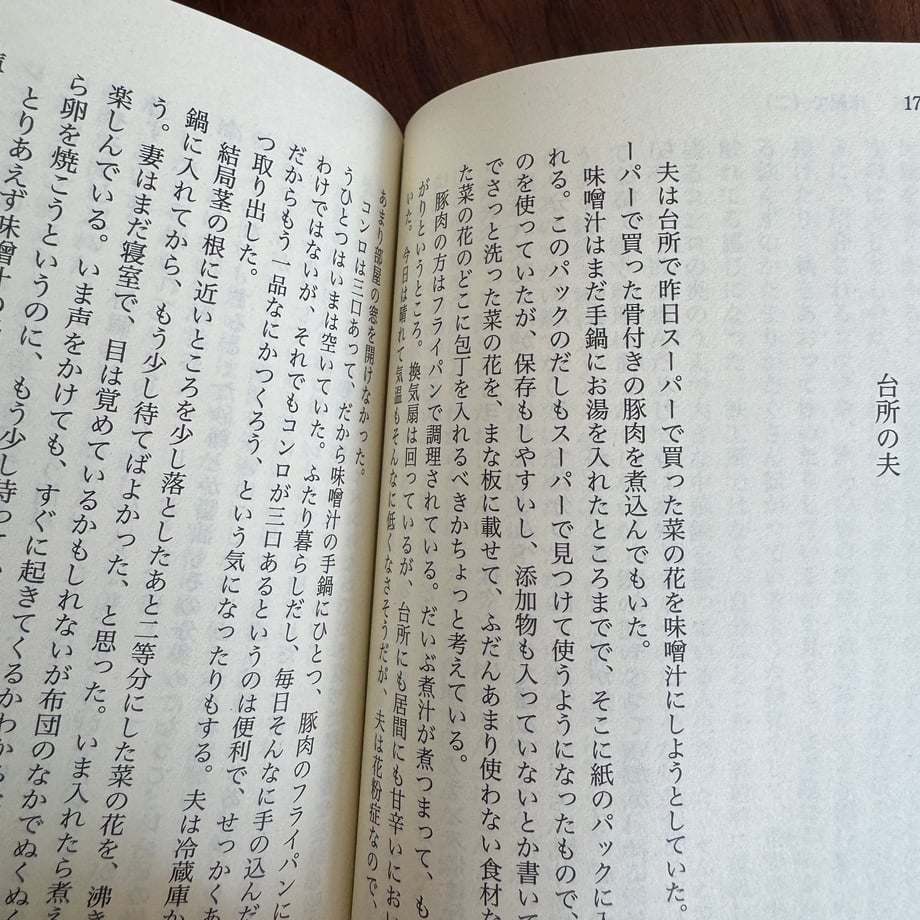 17
台所の夫
夫は台所で昨日スーパーで買った菜の花を味噌汁にしようとしていた。
ーパーで買った骨付きの豚肉を煮込んでもいた。
味噌汁はまだ手鍋にお湯を入れたところまでで、そこに紙のパックに入
れる。このパックのだしもスーパーで見つけて使うようになったもので、
のを使っていたが、保存もしやすいし、添加物も入っていないとか書いて
でさっと洗った菜の花を、まな板に載せて、ふだんあまり使わない食材な
た菜の花のどこに包丁を入れるべきかちょっと考えている。
豚肉の方はフライパンで調理されている。だいぶ煮汁が煮つまって、も
がりというところ。換気扇は回っているが、台所にも居間にも甘辛いにおい
いた。今日は晴れて気温もそんなに低くなさそうだが、夫は花粉症なので、
あまり部屋の窓を開けなかった。
コンロは三口あって、だから味噌汁の手鍋にひとつ、豚肉のフライパンに
うひとつはいまは空いていた。ふたり暮らしだし、毎日そんなに手の込んだ
わけではないが、それでもコンロが三口あるというのは便利で、せっかくあ
だからもう一品なにかつくろう、という気になったりもする。夫は冷蔵庫か
つ取り出した。
結局茎の根に近いところを少し落としたあと二等分にした菜の花を、沸き
鍋に入れてから、もう少し待てばよかった、と思った。いま入れたら煮え
う。妻はまだ寝室で、目は覚めているかもしれないが布団のなかでぬくぬく
楽しんでいる。いま声をかけても、すぐに起きてくるかわから
ら卵を焼こうというのに、もう少し待っ
とりあえず味噌汁の